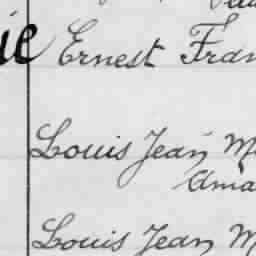 Ernest Fran
Louis Jean M
Ama
Louis Jean M